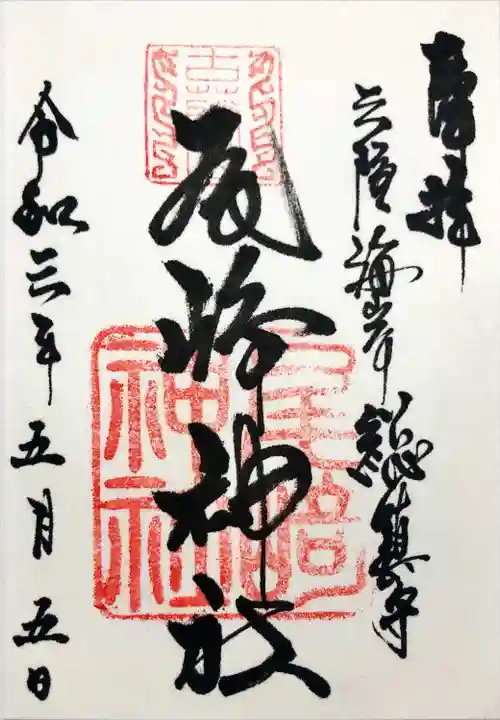 奉拝
三陸海岸総鎮守
尾崎神社
尾崎
神社
令和三年五月五日